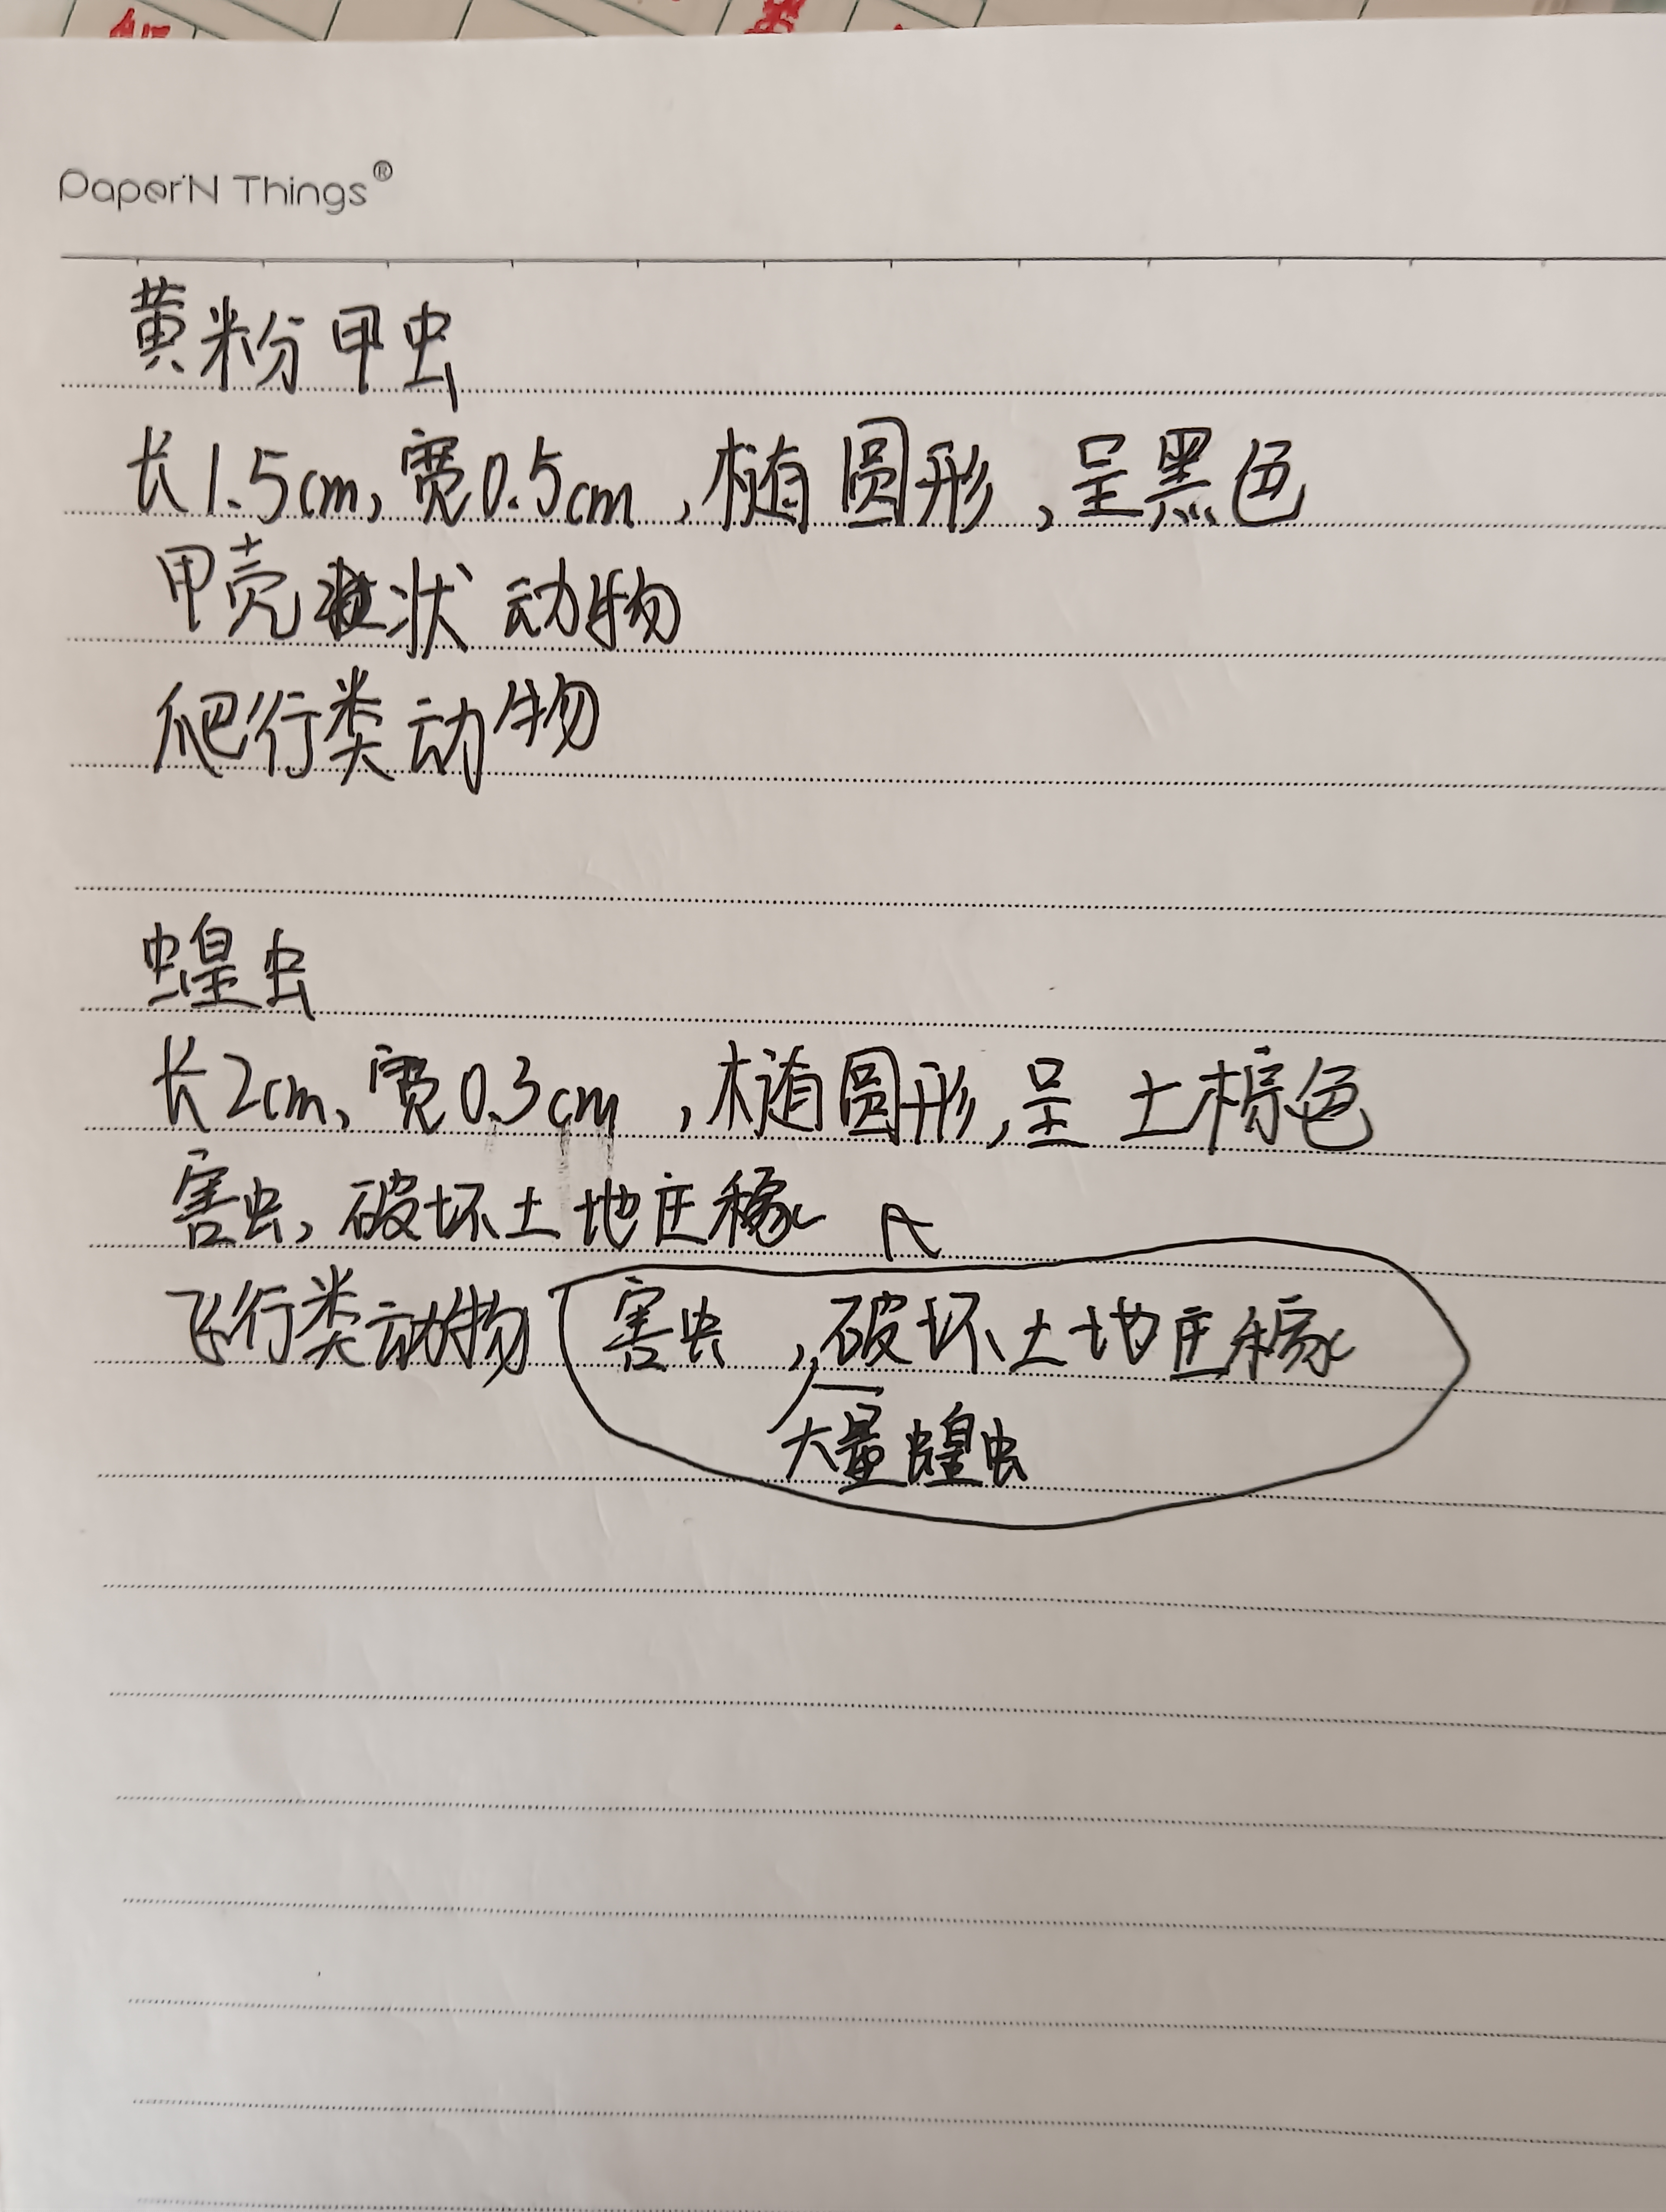 Paper'N Things®
黄粉甲虫
长1.5cm,宽0.5cm,椭圆形,呈黑色
甲壳状动物
爬行类动物
蝗虫
长2cm,宽0.3cm,椭圆形,呈土棕色
害虫,破坏土地庄稼
飞行类动物 害虫,破坏土地庄稼
大量蝗虫